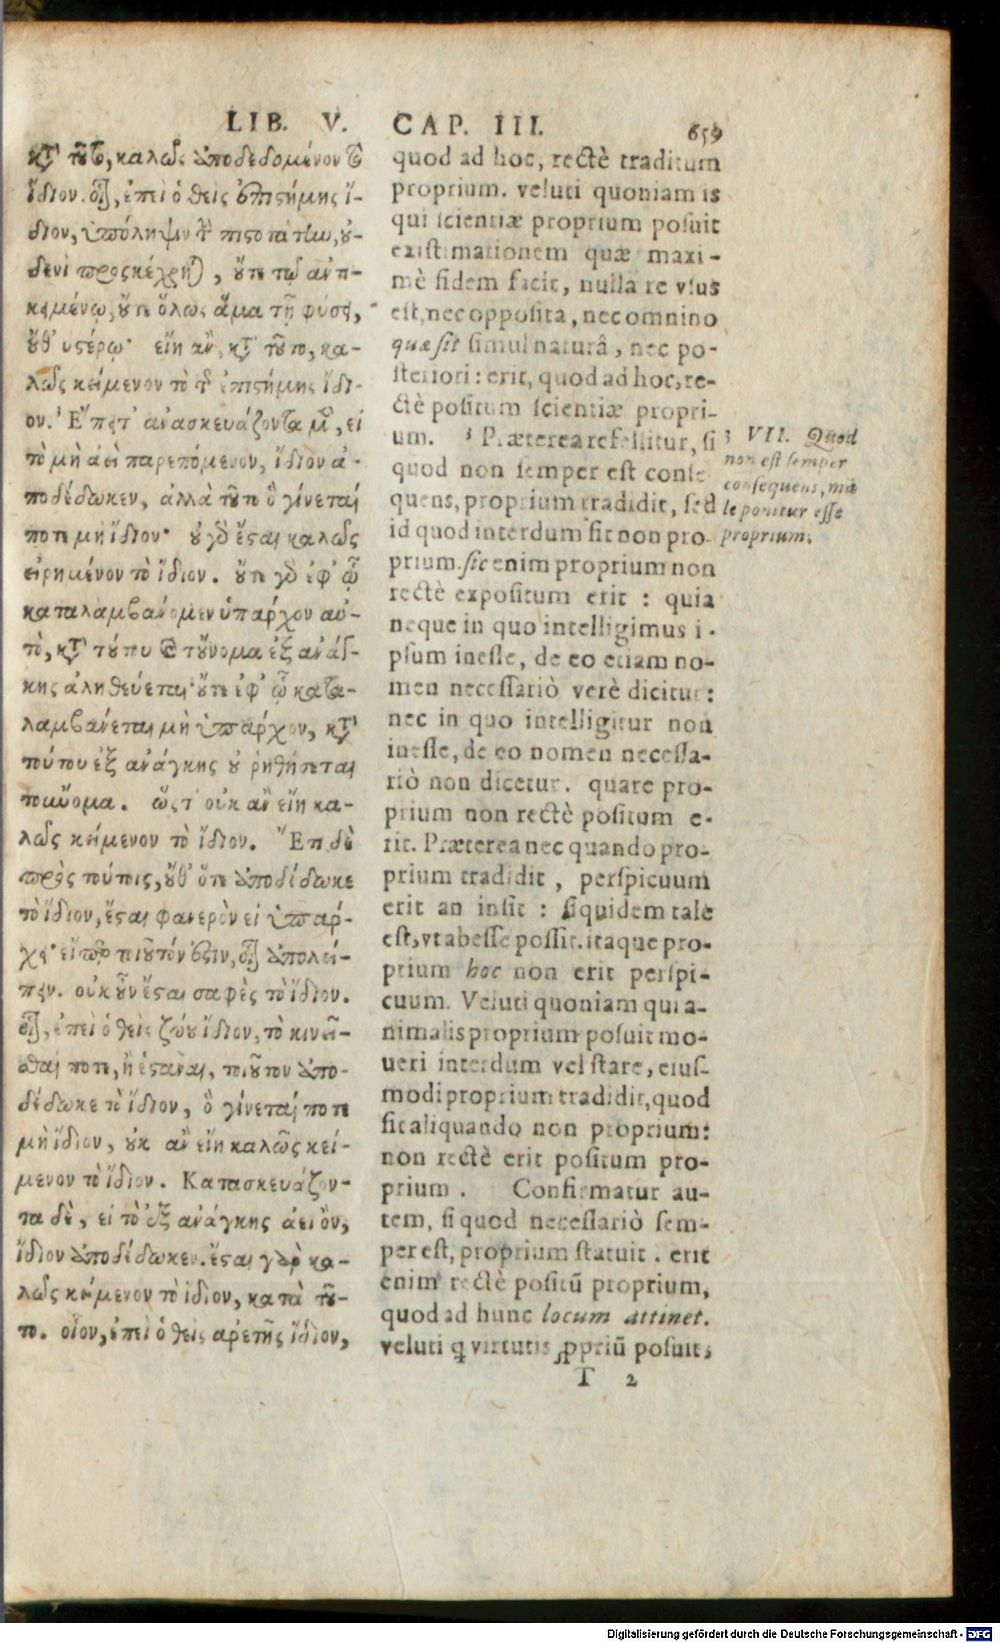 LIB. V. CAP. III. 659
κτ̀ τȣ̃το, καλῶς ἀποδεδομένον τὸ
ἴδιον. οἷον, ἐπεὶ ὁ θεὶς ἐπιστήμης ἴ-
διον, ὑπόληψιν τὴν πιστοτάτην, ȣ̓-
δενὶ προσκέχρηται, ȣ̓́τε τῷ ἀντι-
κειμένῳ, ȣ̓́τε ὅλως ἅμα τῇ φύσει,
ȣ̓́θ' ὑστέρῳ· εἴη ἂν, κτ̀ τȣ̃το, κα-
λῶς κείμενον τὸ τῆς ἐπιστήμης ἴδι-
ον. ³ Ἔπειτ' ἀνασκευάζοντα μὲν, εἰ
τὸ μὴ ἀεὶ παρεπόμενον, ἴδιον ἀ-
ποδέδωκεν, ἀλλὰ τȣ̃το ὃ γίνεται
ποτὲ μὴ ἴδιον· ȣ̓ γὸ ἔσται καλῶς
εἰρημένον τὸ ἴδιον. ȣ̓́τε γὸ ἐφ' ᾧ
καταλαμβάνομεν ὑπάρχον αὐ-
τὸ, κτ̀ τȣ́τȣ καὶ τȣ̓́νομα ἐξ ἀνάγ-
κης ἀληθεύεται· ȣ̓́τε ἐφ' ᾧ κατα-
λαμβάνεται μὴ ὑπάρχον, κτ̀
τούτου ἐξ ἀνάγκης ȣ̓ ῥηθήσεται
τοὔνομα. ὥςτ' οὐκ ἂν εἴη κα-
λῶς κείμενον τὸ ἴδιον. Ἔτι δὲ
πρὸς τούτοις, ȣ̓́θ' ὅτε ἀποδέδωκε
τὸ ἴδιον, ἔσται φανερὸν εἰ ὑπάρ-
χει· εἴπερ τοιȣ̃τόν ἐστιν, οἷον ἀπολεί-
πειν. οὐκȣ̃ν ἔσται σαφὲς τὸ ἴδιον.
οἷον, ἐπεὶ ὁ θεὶς ζώȣ ἴδιον, τὸ κινεῖ-
σθαι ποτὲ, ἢ ἑστάναι, τοιȣ̃τον ἀπο-
δέδωκε τὸ ἴδιον, ὃ γίνεται ποτὲ
μὴ ἴδιον, ȣ̓κ ἂν εἴη καλῶς κεί-
μενον τὸ ἴδιον. Κατασκευάζον-
τα δὲ, εἰ τὸ ἐξ ἀνάγκης ἀεὶ ὂν,
ἴδιον ἀποδέδωκεν. ἔσται γὰρ κα-
λῶς κείμενον τὸ ἴδιον, κατὰ τȣ̃-
το. οἷον, ἐπεὶ ὁ θεὶς ἀρετῆς ἴδιον,
quod ad hoc, rectè traditum
proprium. veluti quoniam is
qui scientiæ proprium posuit
existimationem quæ maxi-
mè fidem facit, nulla re vsus
est, nec opposita, nec omnino
quæ sit simul naturâ, nec po-
steriori: erit, quod ad hoc, re-
ctè positum scientiæ propri-
um. ³ Præterea refellitur, si
quod non semper est conse-
quens, proprium tradidit, sed
id quod interdum fit non pro-
prium. sic enim proprium non
rectè expositum erit: quia
neque in quo intelligimus i-
psum inesse, de eo etiam no-
men necessariò verè dicitur:
nec in quo intelligitur non
inesse, de eo nomen necessa-
riò non dicetur. quare pro-
prium non rectè positum e-
rit. Præterea nec quando pro-
prium tradidit, perspicuum
erit an insit: siquidem tale
est, vt abesse possit. itaque pro-
prium hoc non erit perspi-
cuum. Veluti quoniam qui a-
nimalis proprium posuit mo-
ueri interdum vel stare, eius-
modi proprium tradidit, quod
fit aliquando non proprium:
non rectè erit positum pro-
prium. Confirmatur au-
tem, si quod necessariò sem-
per est, proprium statuit. erit
enim rectè positū proprium,
quod ad hunc locum attinet.
veluti ꝙ virtutis ꝓpriū posuit,
3 VII. Quod
non est semper
consequens, ma
le ponitur esse
proprium.
T 2
Digitalisierung gefördert durch die Deutsche Forschungsgemeinschaft - DFG